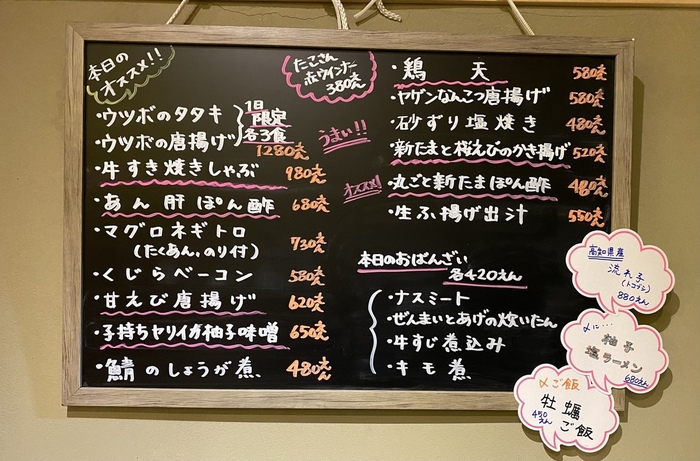 本日の
オススメ!!
・ウツボのタタキ
・ウツボの唐揚げ
1日
限定
各3食
1280えん
・牛すき焼きしゃぶ 980えん
・あん肝ぽん酢 680えん
・マグロネギトロ
(たくあん、のり付) 730えん
・くじらベーコン 580えん
・甘えび唐揚げ 620えん
・子持ちヤリイカ柚子味噌 650えん
・鯖のしょうが煮 480えん
たこさん
赤ウインナー
380えん
うまい!!
オススメ!
・鶏天 580えん
・ヤゲンなんこつ唐揚げ 580えん
・砂ずり塩焼き 480えん
・新たまと桜えびのかき揚げ 520えん
・丸ごと新たまぽん酢 480えん
・生ふ揚げ出汁 550えん
本日のおばんざい
各420えん
・ナスミート
・ぜんまいとあげの炊いたん
・牛すじ煮込み
・キモ煮
高知県産
流れ子
(トコブシ)
880えん
〆に…
柚子
塩ラーメン
680えん
〆ご飯
牡蠣
ご飯
450えん